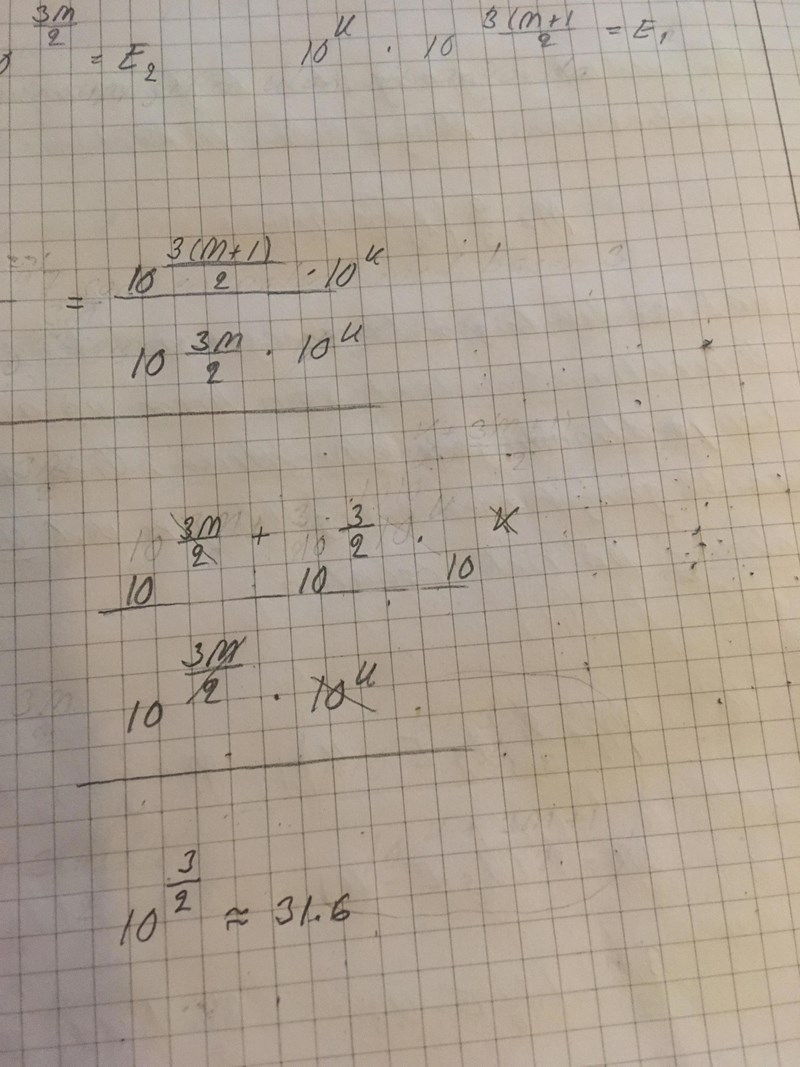 10^(3M/2) = E₂     10^K · 10^(3(M+1/2) = E₁
= (10^(3(M+1)/2) · 10^K) / (10^(3M/2) · 10^K)
(10^(3M/2) + 10^(3/2) · 10^K) / (10^(3M/2) · 10^K)
10^(3/2) ≈ 31.6